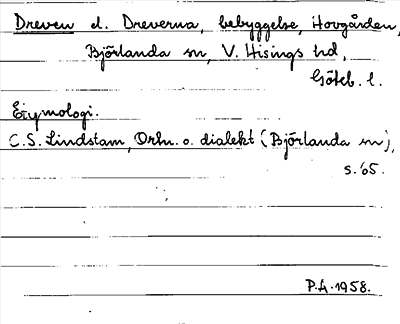 Dreven el. Dreverna, bebyggelse, Hovgården,
Björlanda sn, V. Hisings hd,
Göteb. l.
Etymologi.
C.S. Lindstam, Ortn. o. dialekt (Björlanda sn),
s. 65.
P.A. 1958.